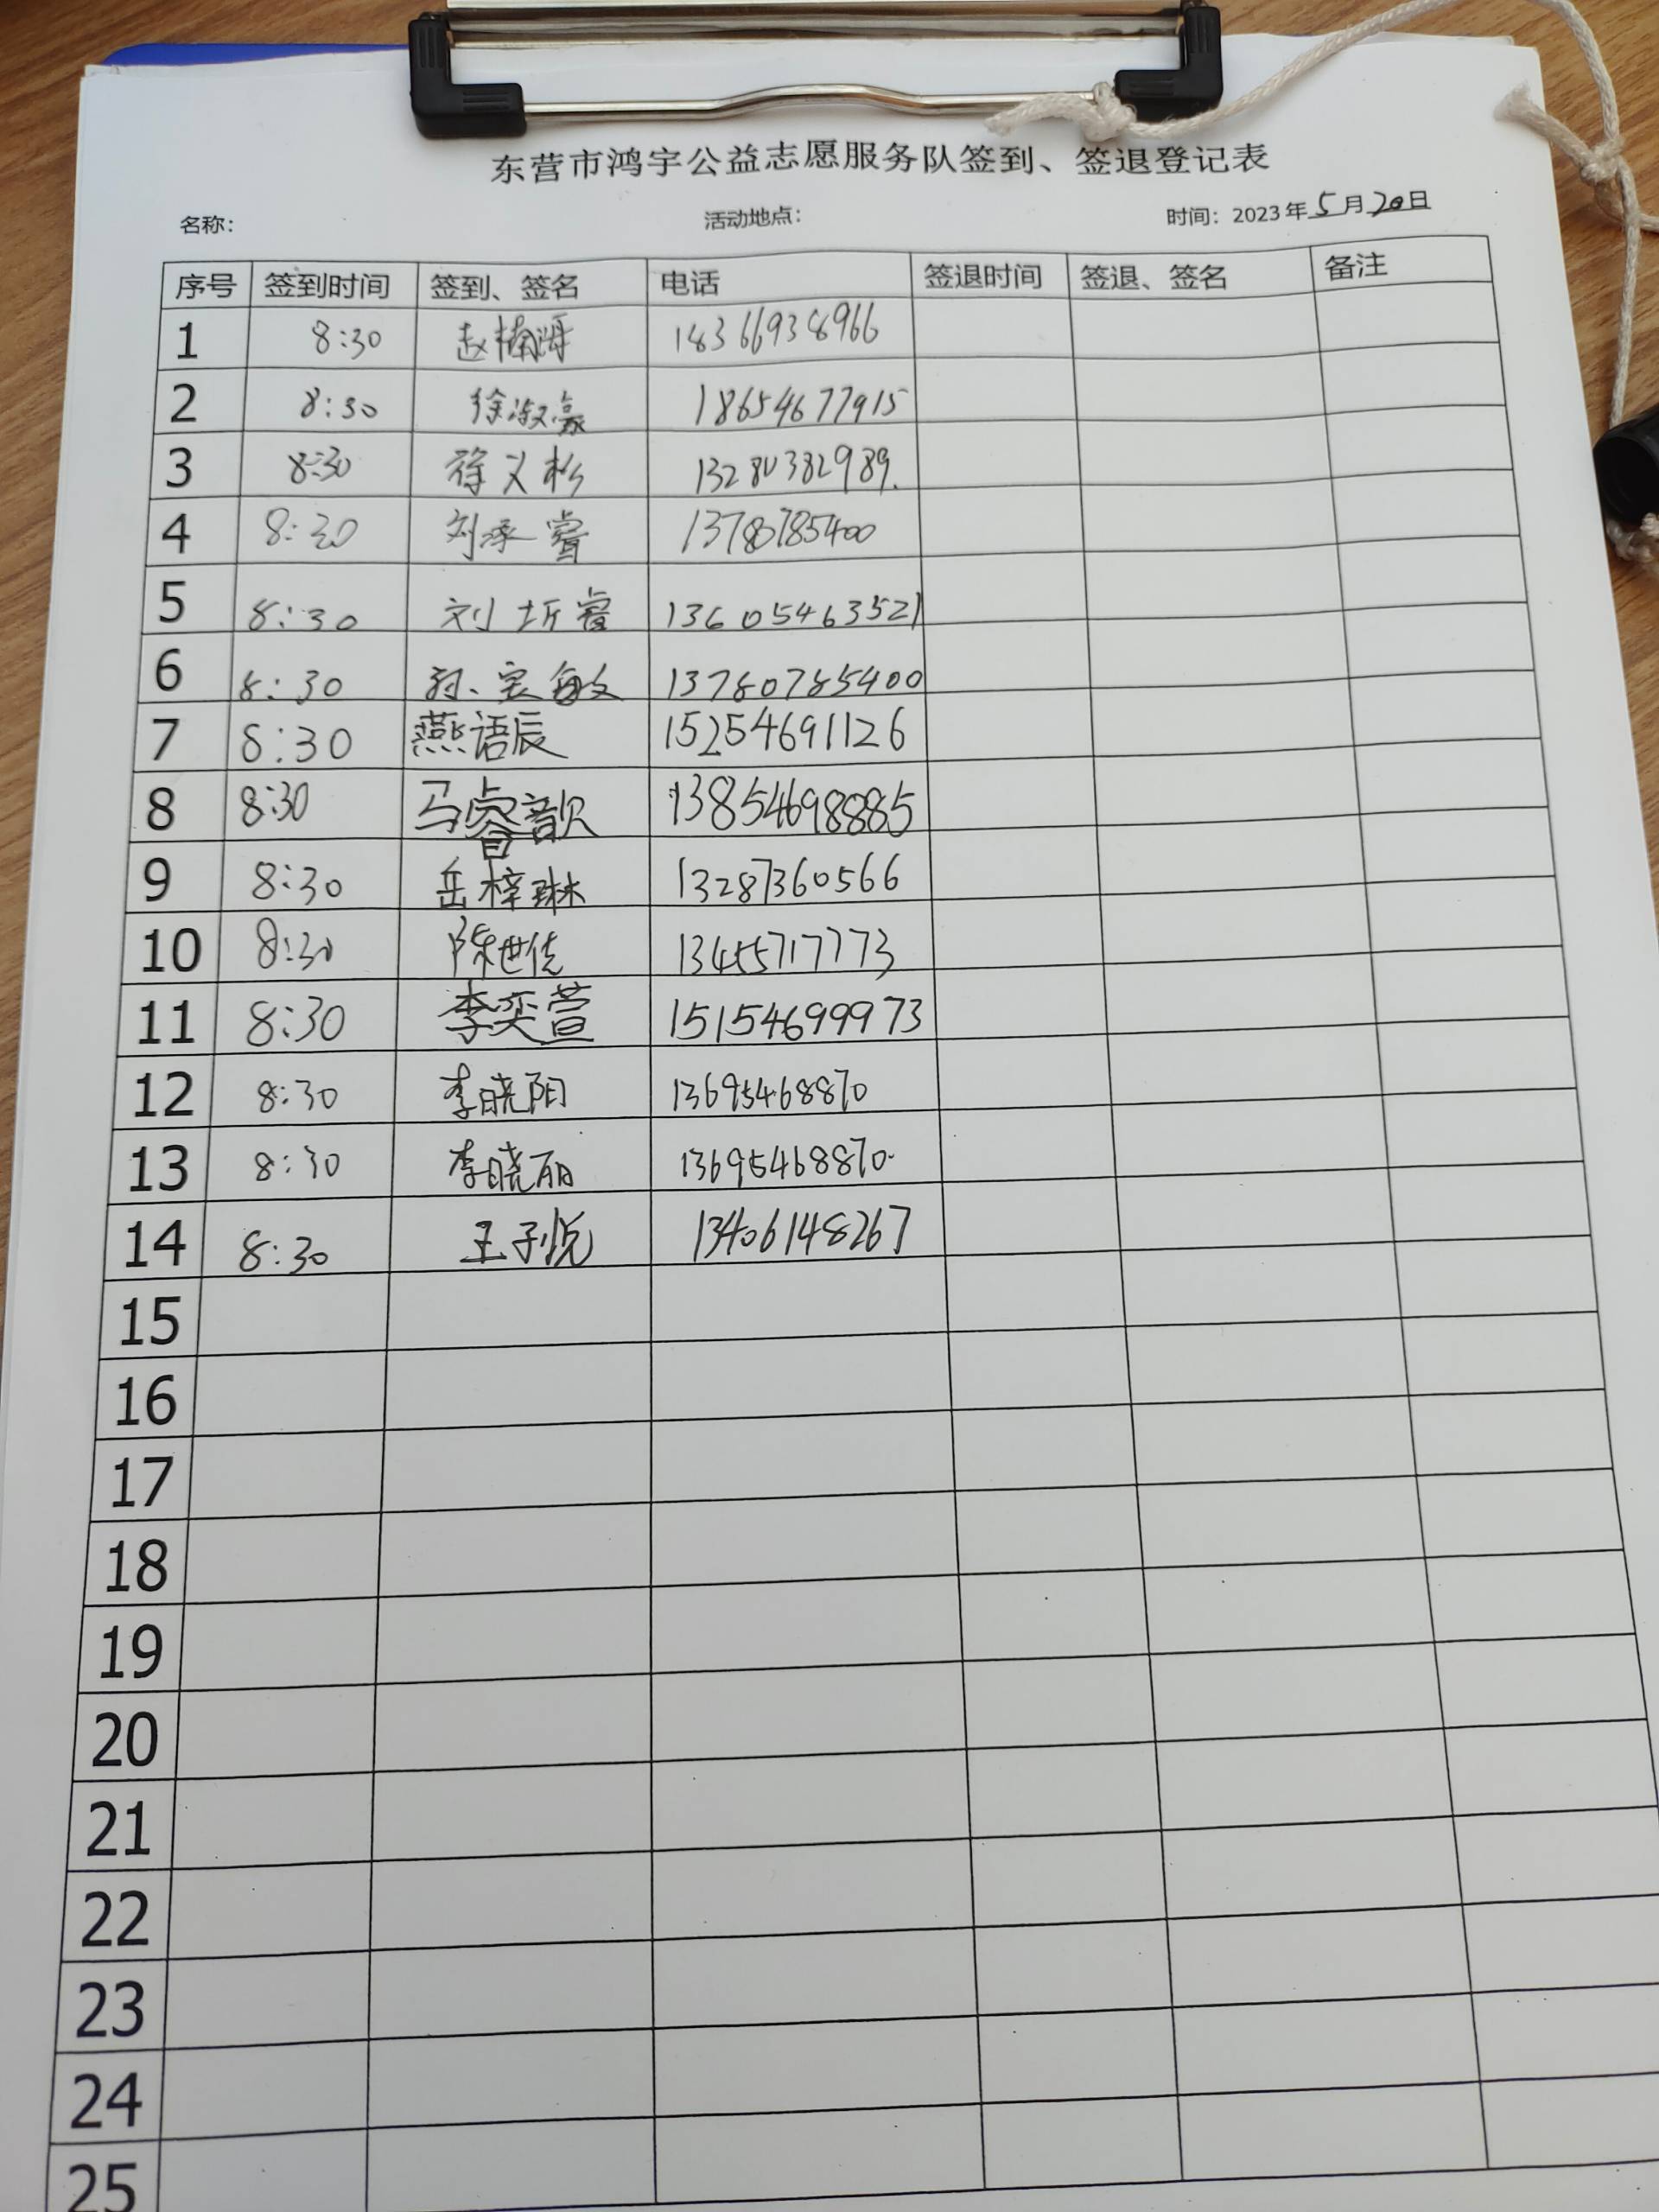 东营市鸿宇公益志愿服务队签到、签退登记表
名称： 活动地点： 时间：2023年5月20日
序号 签到时间 签到、签名 电话 签退时间 签退、签名 备注
1 8:30 赵楠 18366938966
2 8:30 徐淑豪 18654677915
3 8:30 徐义杉 13280382989.
4 8:30 刘承睿 13780785400
5 8:30 刘圻睿 13605463521
6 8:30 孙宝敏 13780785400
7 8:30 燕语辰 15254691126
8 8:30 马睿歆 13854698885
9 8:30 岳梓琳 13287360566
10 8:30 陈世佳 13455717773
11 8:30 李奕萱 15154699973
12 8:30 李晓阳 13695468870
13 8:30 李晓丽 13695468870
14 8:30 王子悦 13406148267
15
16
17
18
19
20
21
22
23
24
25